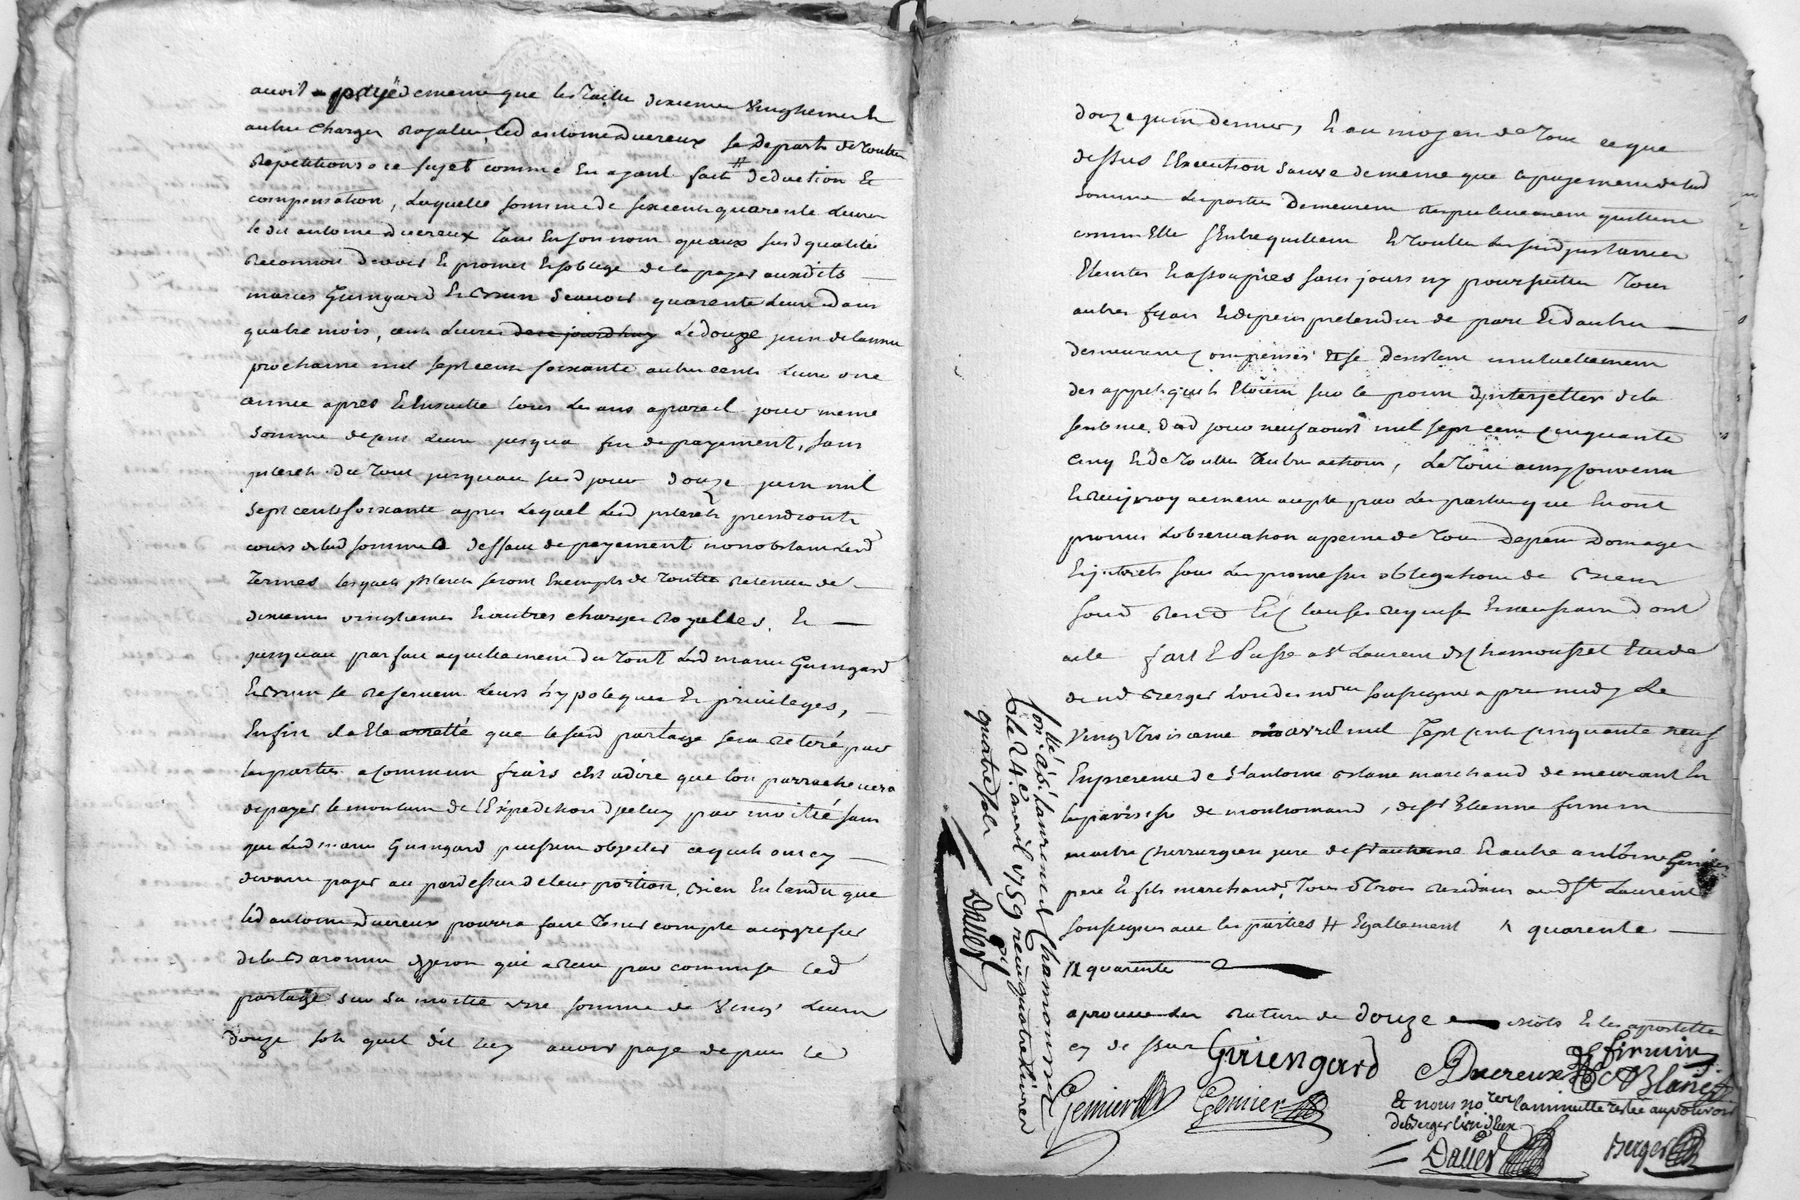 avoir payé de meme que les taille dixieme vingtieme et
autre charges royalles, led antoine Ducreux se depart de toutte
repetitions a ce sujet comme en ayant fait deduction et
compensation, laquelle somme de six cents quarente livres
le dit antoine Ducreux tant en son nom quaux susd qualité
reconnoit devoir et promet et soblige de la payer auxdits
maries Guingard et Brun scavoir quarente livres dans
quatre mois, cent livres de ce jourdhuy le douze juin de lannée
prochaine mil sept cent soixante autre cents livres une
année apres et ensuitte tous les ans a pareil jour meme
somme de cent livres jusqua fin de payement, sans
interets du tout jusquau susd jour douze juin mil
sept cents soixante apres lequel lesd interets prendront
cours de lad somme a deffaut de payement nonobstant lesd
termes lesquels interets seront exempts de toutte retenue de
dixiemes vingtiemes et autres charges royalles. Et
jusquau parfait aquittement du tout lesd maries Guingard
et Brun se reservent leurs hypoteques et privileges,
Enfin il a ete arretté que le susd partage sera retiré par
les parties a commun frais cest adire que lon parrachevera
de payer le montant de lexpedition dicelluy par moitié sans
que lesd maries Guingard puissent objecter ce quils ont cy
devant payer au pardessus de leur portion, bien entendu que
led antoine Ducreux pourra faire tenir compte au greffier
de la Baronnie qui a receu par commise led
partage sur sa moitié une somme de vingt livres
douze sols quil dit luy avoir payé depuis le
douze juin dernier, et au moyen de tout ce que
dessus lexecution sauve de meme que le payement de lad
somme les parties demeurent respectivement quittes
comme elle sentrequittent et touttes les susd instances
eteintes et assoupies sans jours ny poursuittes tous
autres frais et depens pretendus de part et dautre
demeurent compensés et se desistent mutuellement
des appels quils etoient sur le point dinterjetter de la
sentence dud jour neuf aoust mil sept cent cinquante
cinq et de toutte autre actions, le tout ainsy convenu
et reciproquement accepté par les parties que en ont
promis lobservation a peine de tous depens domages
et interets sous les promesses obligations de biens
soud renond et clauses requises et necessaires dont
acte fait et passé a st Laurent de Chamousset etude
de me Berger lun des nores soussignés apres midy le
vingt troisieme avril mil sept cent cinquante neuf
En presence de sr antoine Blanc marchand demeurant en
la paroisse de montromand, de sr Etienne firmin
maitre chirurgien juré et autre antoine Gemier
pere et fils marchands, tous trois residans aud st Laurent
soussignés avec les parties # Egallement x quarente
11 quarente
aprouve les rature de douze mots et les apostille
cy dessus
Guiengard
Ducreux
firmin
Blanc
Gemier
Gemier
Et nous nore la minutte restée au pouvoir
de Berger lun deux
Dalier
Berger
Conllé à St Laurent de Chamousset
le 24e avril 1759 reçu quatre livres
quatre sols
Dalier